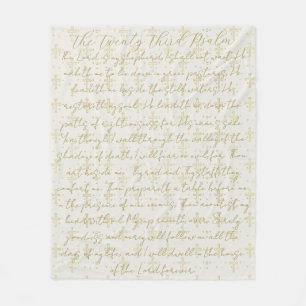 The Twenty Third Psalm
The Lord is my shepherd; I shall not want. He
maketh me to lie down in green pastures: He
leadeth me beside the still waters. He
restoreth my soul: He leadeth me down the
paths of righteousness for His name's sake.
Yea, though I walk through the valley of the
shadow of death, I will fear no evil: for Thou
art beside me; Thy rod and thy staff they
comfort me. Thou preparest a table before me
in the presence of my enemies; Thou anointest my
head with oil; My cup runneth over. Surely
goodness and mercy will follow me all the
days of my life; and I will dwell in the house
of the Lord forever.